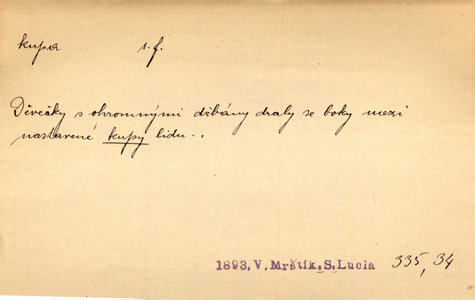 kupa s.f.
Děvečky s ohromnými džbány draly se boky mezi
nastavené kupy lidu..
1893, V. Mrštík. S. Lucia 335, 34